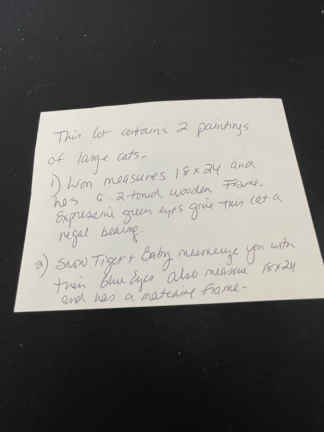 This lot contains 2 paintings
of large cats.
1) Lion measures 18x24 and
has a 2-toned wooden frame.
Expressive green eyes give this cat a
regal bearing.
2) Snow Tiger + Baby mesmerize you with
their blue Eyes also measure 18x24
and has a matching frame.